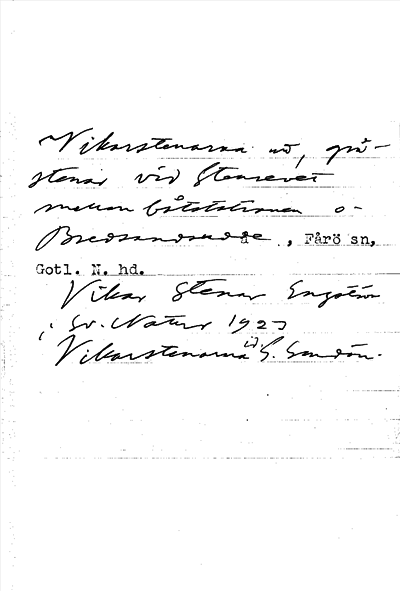 Vikarstenarna nö, grå-
stenar vid Stenrevet
mellan båtstationen o
Bredsandsudde, Fårö sn,
Gotl. N. hd.
Vikar Stenar Engström
i Sv. Natur 1923
Vikarstenarna G. Sandön.